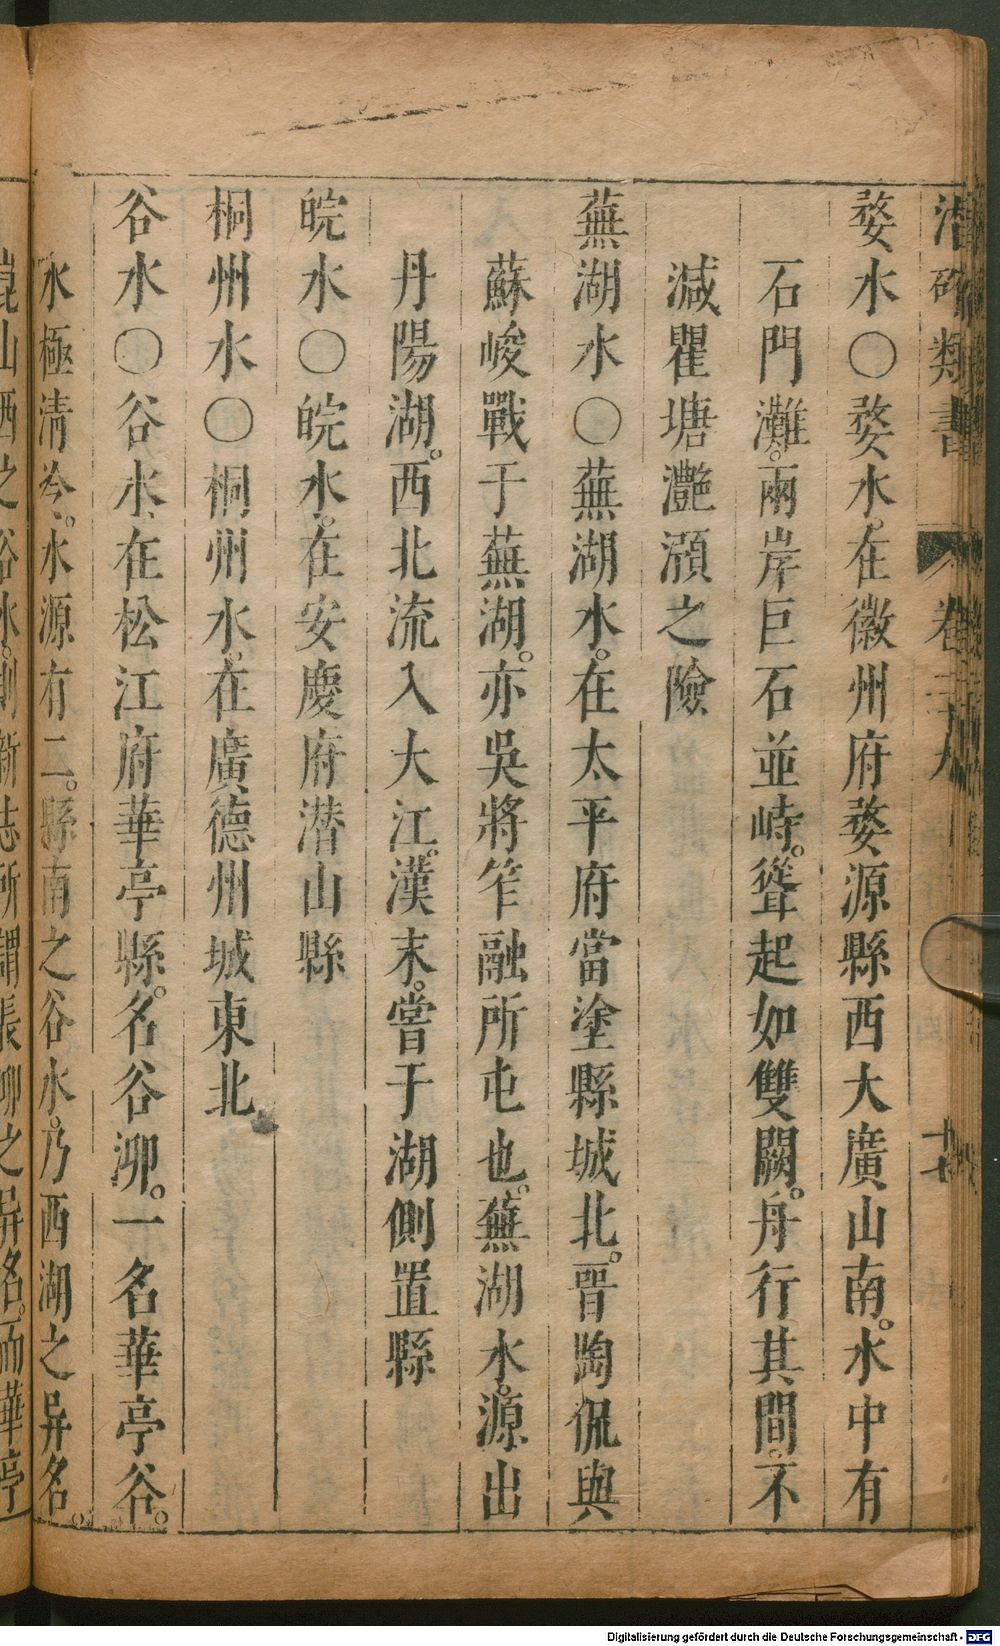 潛確類書
卷二十九
十七
婺水〇婺水。在徽州府婺源縣西大廣山南。水中有
石門灘。兩岸巨石並峙。聳起如雙闕。舟行其間。不
減瞿塘灩澦之險
蕪湖水〇蕪湖水。在太平府當塗縣城北。晉陶侃與
蘇峻戰于蕪湖。亦吳將笮融所屯也。蕪湖水。源出
丹陽湖。西北流入大江。漢末。嘗于湖側置縣
皖水〇皖水。在安慶府潛山縣
桐州水〇桐州水。在廣德州城東北
谷水〇谷水、在松江府華亭縣。名谷泖。一名華亭谷。
水極清冷。水源有二。縣南之谷水。乃西湖之異名。
崑山西之谷水。則新志所謂長泖之異名。而華亭
Digitalisierung gefördert durch die Deutsche Forschungsgemeinschaft - DFG